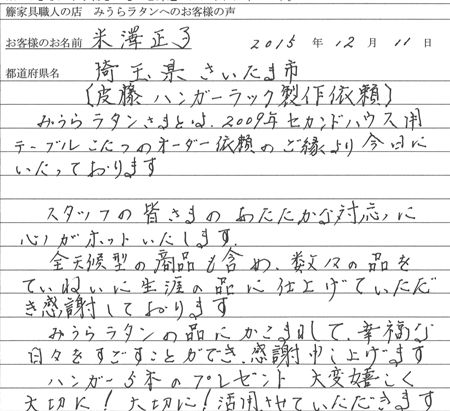 籐家具職人の店 みうらラタンへのお客様の声
お客様のお名前 米澤正子 2015 年 12 月 11 日
都道府県名 埼玉県さいたま市
(皮籐ハンガーラック製作依頼)
みうらラタンさまとは、2009年セカンドハウス用
テーブルこたつのオーダー依頼のご縁より今日に
いたっております
スタッフの皆さまのあたたかな対応に
心がホットいたします。
全天候型の商品も含め、数々の品を
ていねいに生涯の品に仕上げていただ
き感謝しております
みうらラタンの品にかこまれて、幸福な
日々をすごすことができ、感謝申し上げます
ハンガー5本のプレゼント 大変嬉しく
大切に!大切に!活用させていただきます